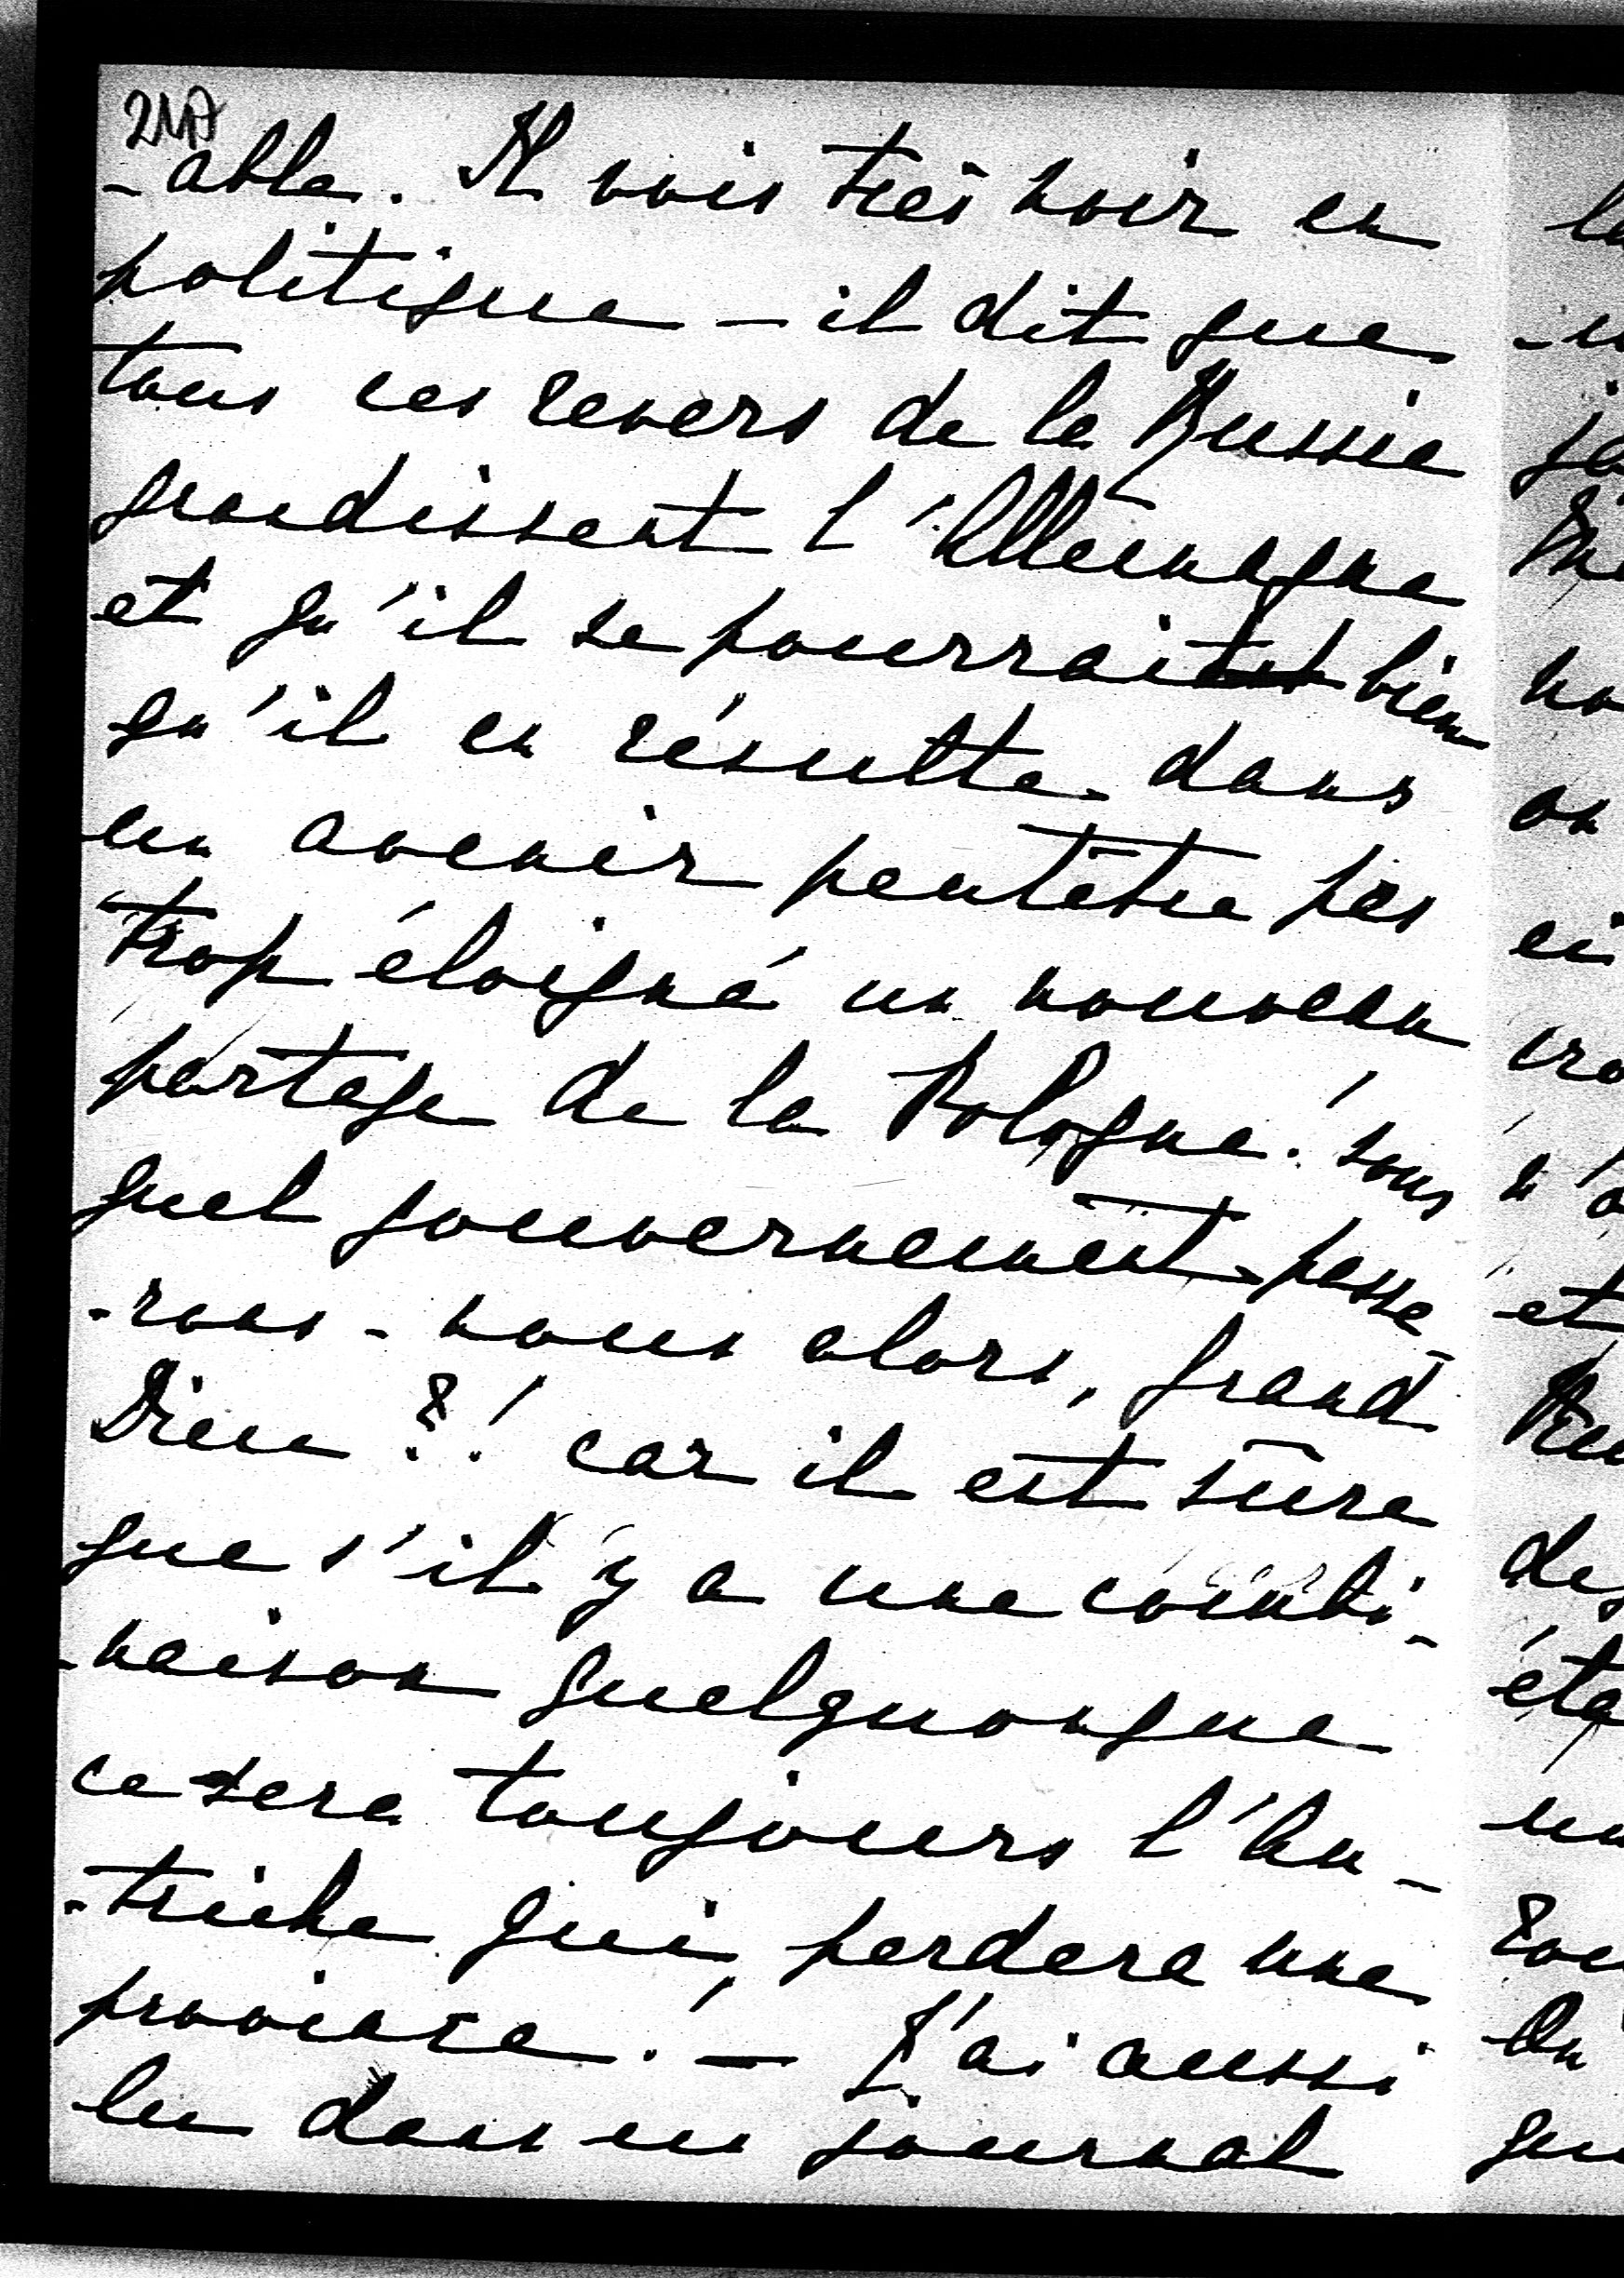 217
-able. Il vois très noir en
politique – il dit que
tous ces revers de la Russie
grandissent l'Allemagne
et qu'il se pourrait bien
qu'il en résulte dans
un avenir peutêtre pas
trop éloigné un nouveau
partage de la Pologne! sous
quel gouvernement passe-
-rons-nous alors, grand
Dieu?! car il est sûre
que s'il y a une combi-
-naison quelquonque
ce sera toujours l'Au-
-triche qui perdera une
province! – J'ai aussi
lu dans un journal